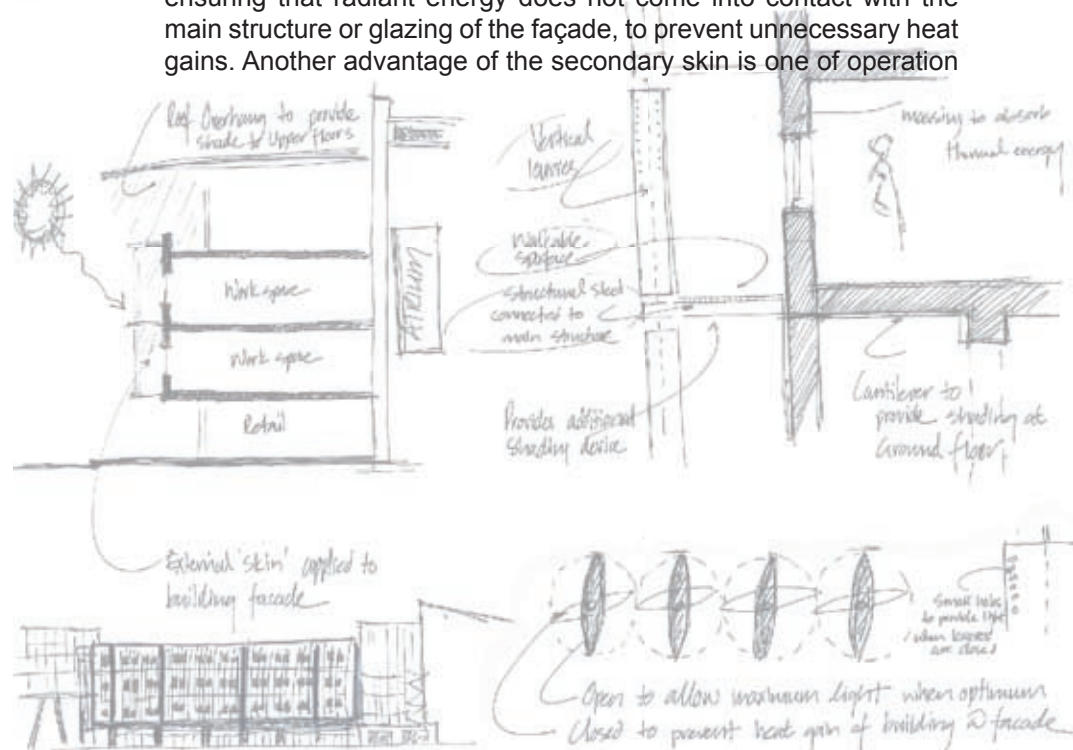 ensuring that radiant energy does not come into contact with the
main structure or glazing of the façade, to prevent unnecessary heat
gains. Another advantage of the secondary skin is one of operation
Roof Overhang to provide
shade to Upper floors
Work space
Work space
Retail
ATRIUM
External 'skin' applied to
building facade
Vertical
louvres
Walkable
surface
structural steel
connected to
main structure
Provides additional
shading device
massing to absorb
thermal energy
Cantilever to
provide shading at
Ground floor
Small holes
to provide light
when louvres
are closed
Open to allow maximum light when optimum
Closed to prevent heat gain of building @ facade